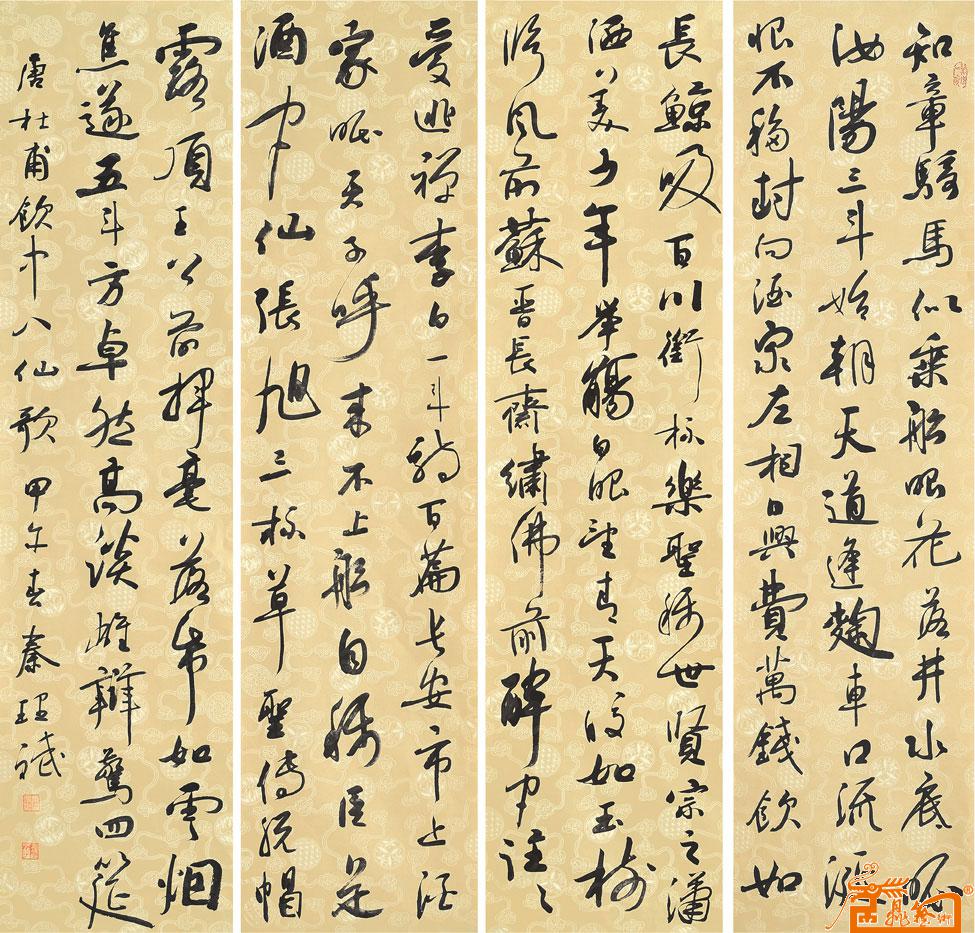 知章騎馬似乗船眼花落井水底眠
汝陽三斗始朝天道逢麴車口流涎
恨不移封向酒泉左相日興費萬錢飲如
長鯨吸百川銜杯樂聖稱世賢宗之瀟
洒美少年舉觴白眼望青天皎如玉樹
臨風前蘇晉長齋繡佛前醉中往々
愛逃禪李白一斗詩百篇長安市上酒
家眠天子呼來不上船自稱臣是
酒中仙張旭三杯草聖傳脫帽
露頂王公前揮毫落帋如雲烟
焦遂五斗方卓然高談雄辯驚四筵
唐杜甫飲中八仙歌甲午春秦理斌